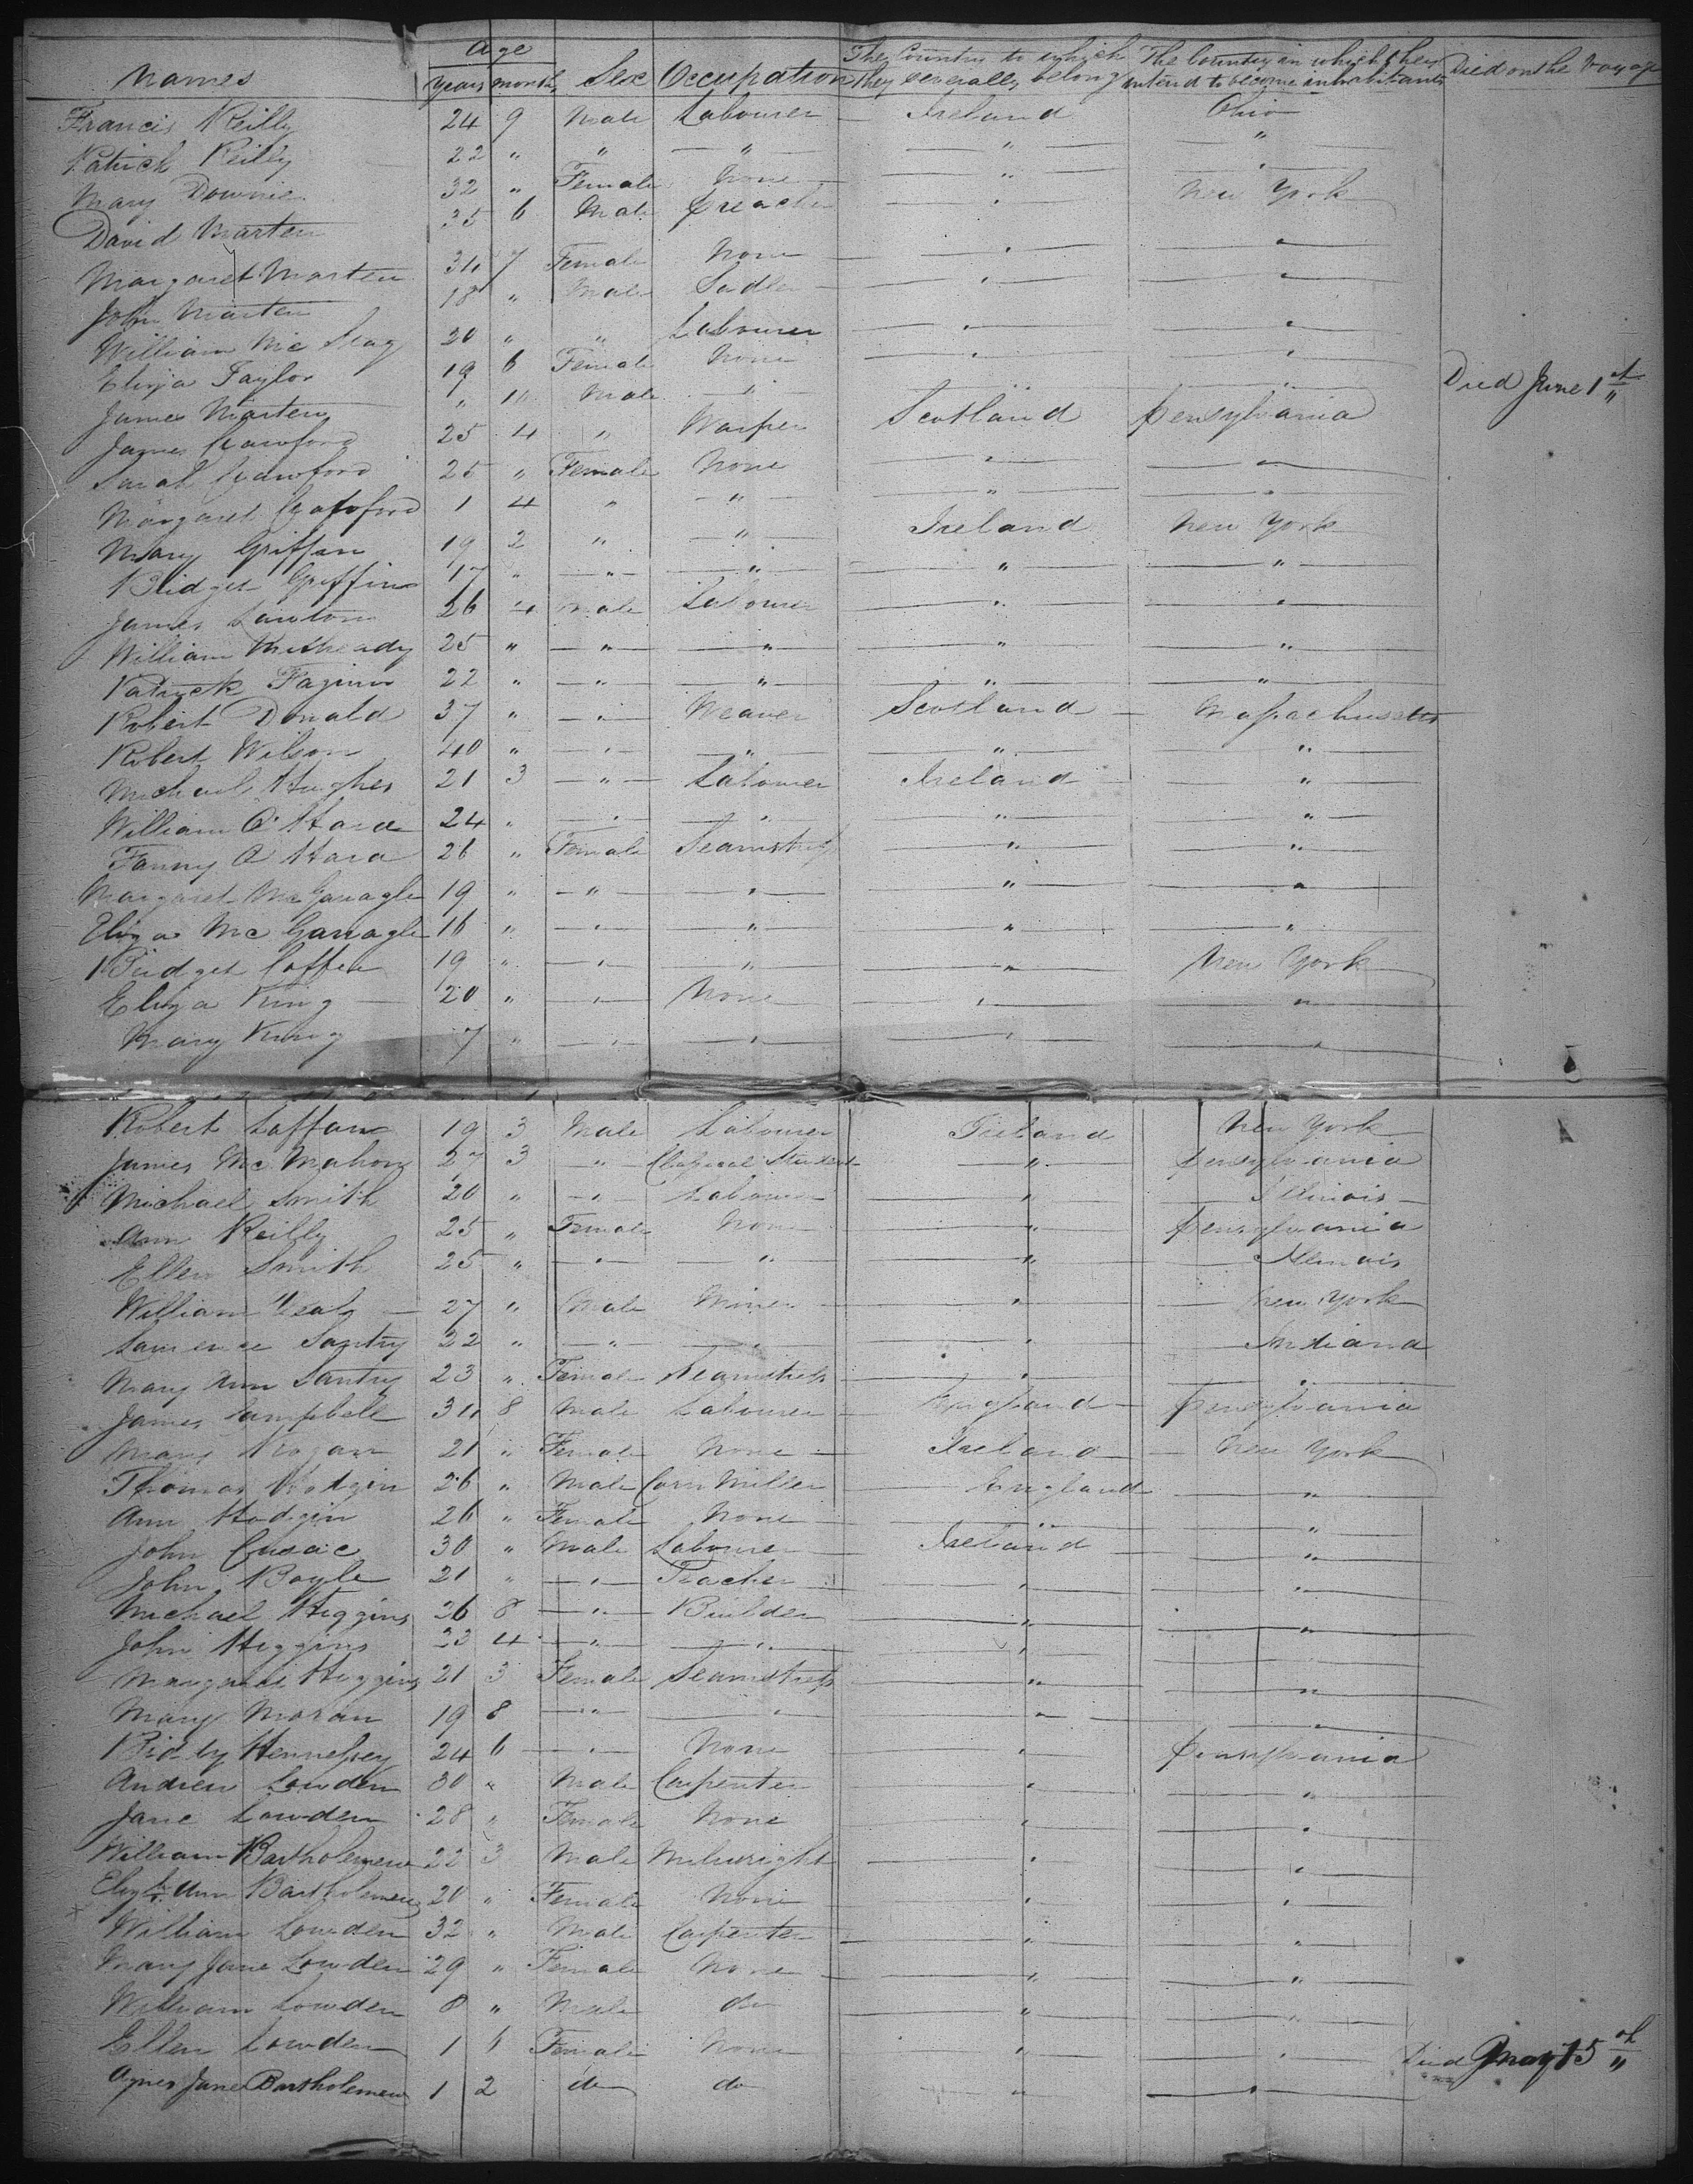 Names Age years months Sex Occupation The Country to which they severally belong The Country in which they intend to become inhabitants Died on the Voyage
Francis Reilly 24 9 Male Labourer Ireland Ohio
Patrick Reilly 22 " " " " "
Mary Downie 32 " Female None " "
David Marten 35 6 Male Preacher " New York
Margaret Marten 34 7 Female None " "
John Marten 18 " Male Sadler " "
William Mc 20 " " Labourer " "
Eliza Taylor 19 6 Female None " "
James Marten " 10 Male " " " Died June 1st
James Crawford 25 4 " Warper Scotland Pensylvania
Sarah Crawford 25 " Female None " "
Margaret Crawford 1 4 " " " "
Mary Griffin 19 2 " " Ireland New York
Bridget Griffin 17 " " " " "
James Lawton 26 4 Male Labourer " "
William 25 " " " " "
Patrick 22 " " " " "
Robert Donald 37 " " Weaver Scotland Massachusetts
Robert Wilson 40 " " " " "
Michael Hughes 21 3 " Labourer Ireland "
William O'Hara 24 " " " " "
Fanny O Hara 26 " Female Seamstress " "
Margaret McGanagle 19 " " " " "
Eliza Mc Ganagle 16 " " " " "
Bridget 19 " " " " New York
Eliza King 20 " " None " "
Mary King 7 " " " " "
Robert Laffan 19 3 Male Labourer Ireland New York
James Mc Mahon 27 3 " Classical Student " Pensylvania
Michael Smith 20 " " Labourer " Illinois
Ann Reilly 25 " Female None " Pensylvania
Ellen Smith 25 " " " " Illinois
William 27 " Male Miner " New York
Lawrence Santry 22 " " " " Indiana
Mary Ann Santry 23 " Female Seamstress " "
James Campbell 34 8 Male Labourer England Pensylvania
Mary 21 " Female None Ireland New York
Thomas Hodgin 26 " Male Corn Miller England "
Ann Hodgin 26 " Female None " "
John Cusac 30 " Male Labourer Ireland "
John Boyle 21 " " Teacher " "
Michael Higgins 26 8 " Builder " "
John Higgins 23 4 " " " "
Margaret Higgins 21 3 Female Seamstress " "
Mary Moran 19 8 " " " "
Bidby Hennessey 24 6 " None " Pensylvania
Andrew Lowden 30 " Male Carpenter " "
Jane Lowden 28 " Female None " "
William Bartholemew 22 3 Male Milwright " "
Elizth Ann Bartholemew 20 " Female None " "
William Lowden 32 " Male Carpenter " "
Mary Jane Lowden 29 " Female None " "
William Lowden 8 " Male do " "
Ellen Lowden 1 6 Female None " " Died May 15th
Agnes Jane Bartholemew 1 2 do do " "